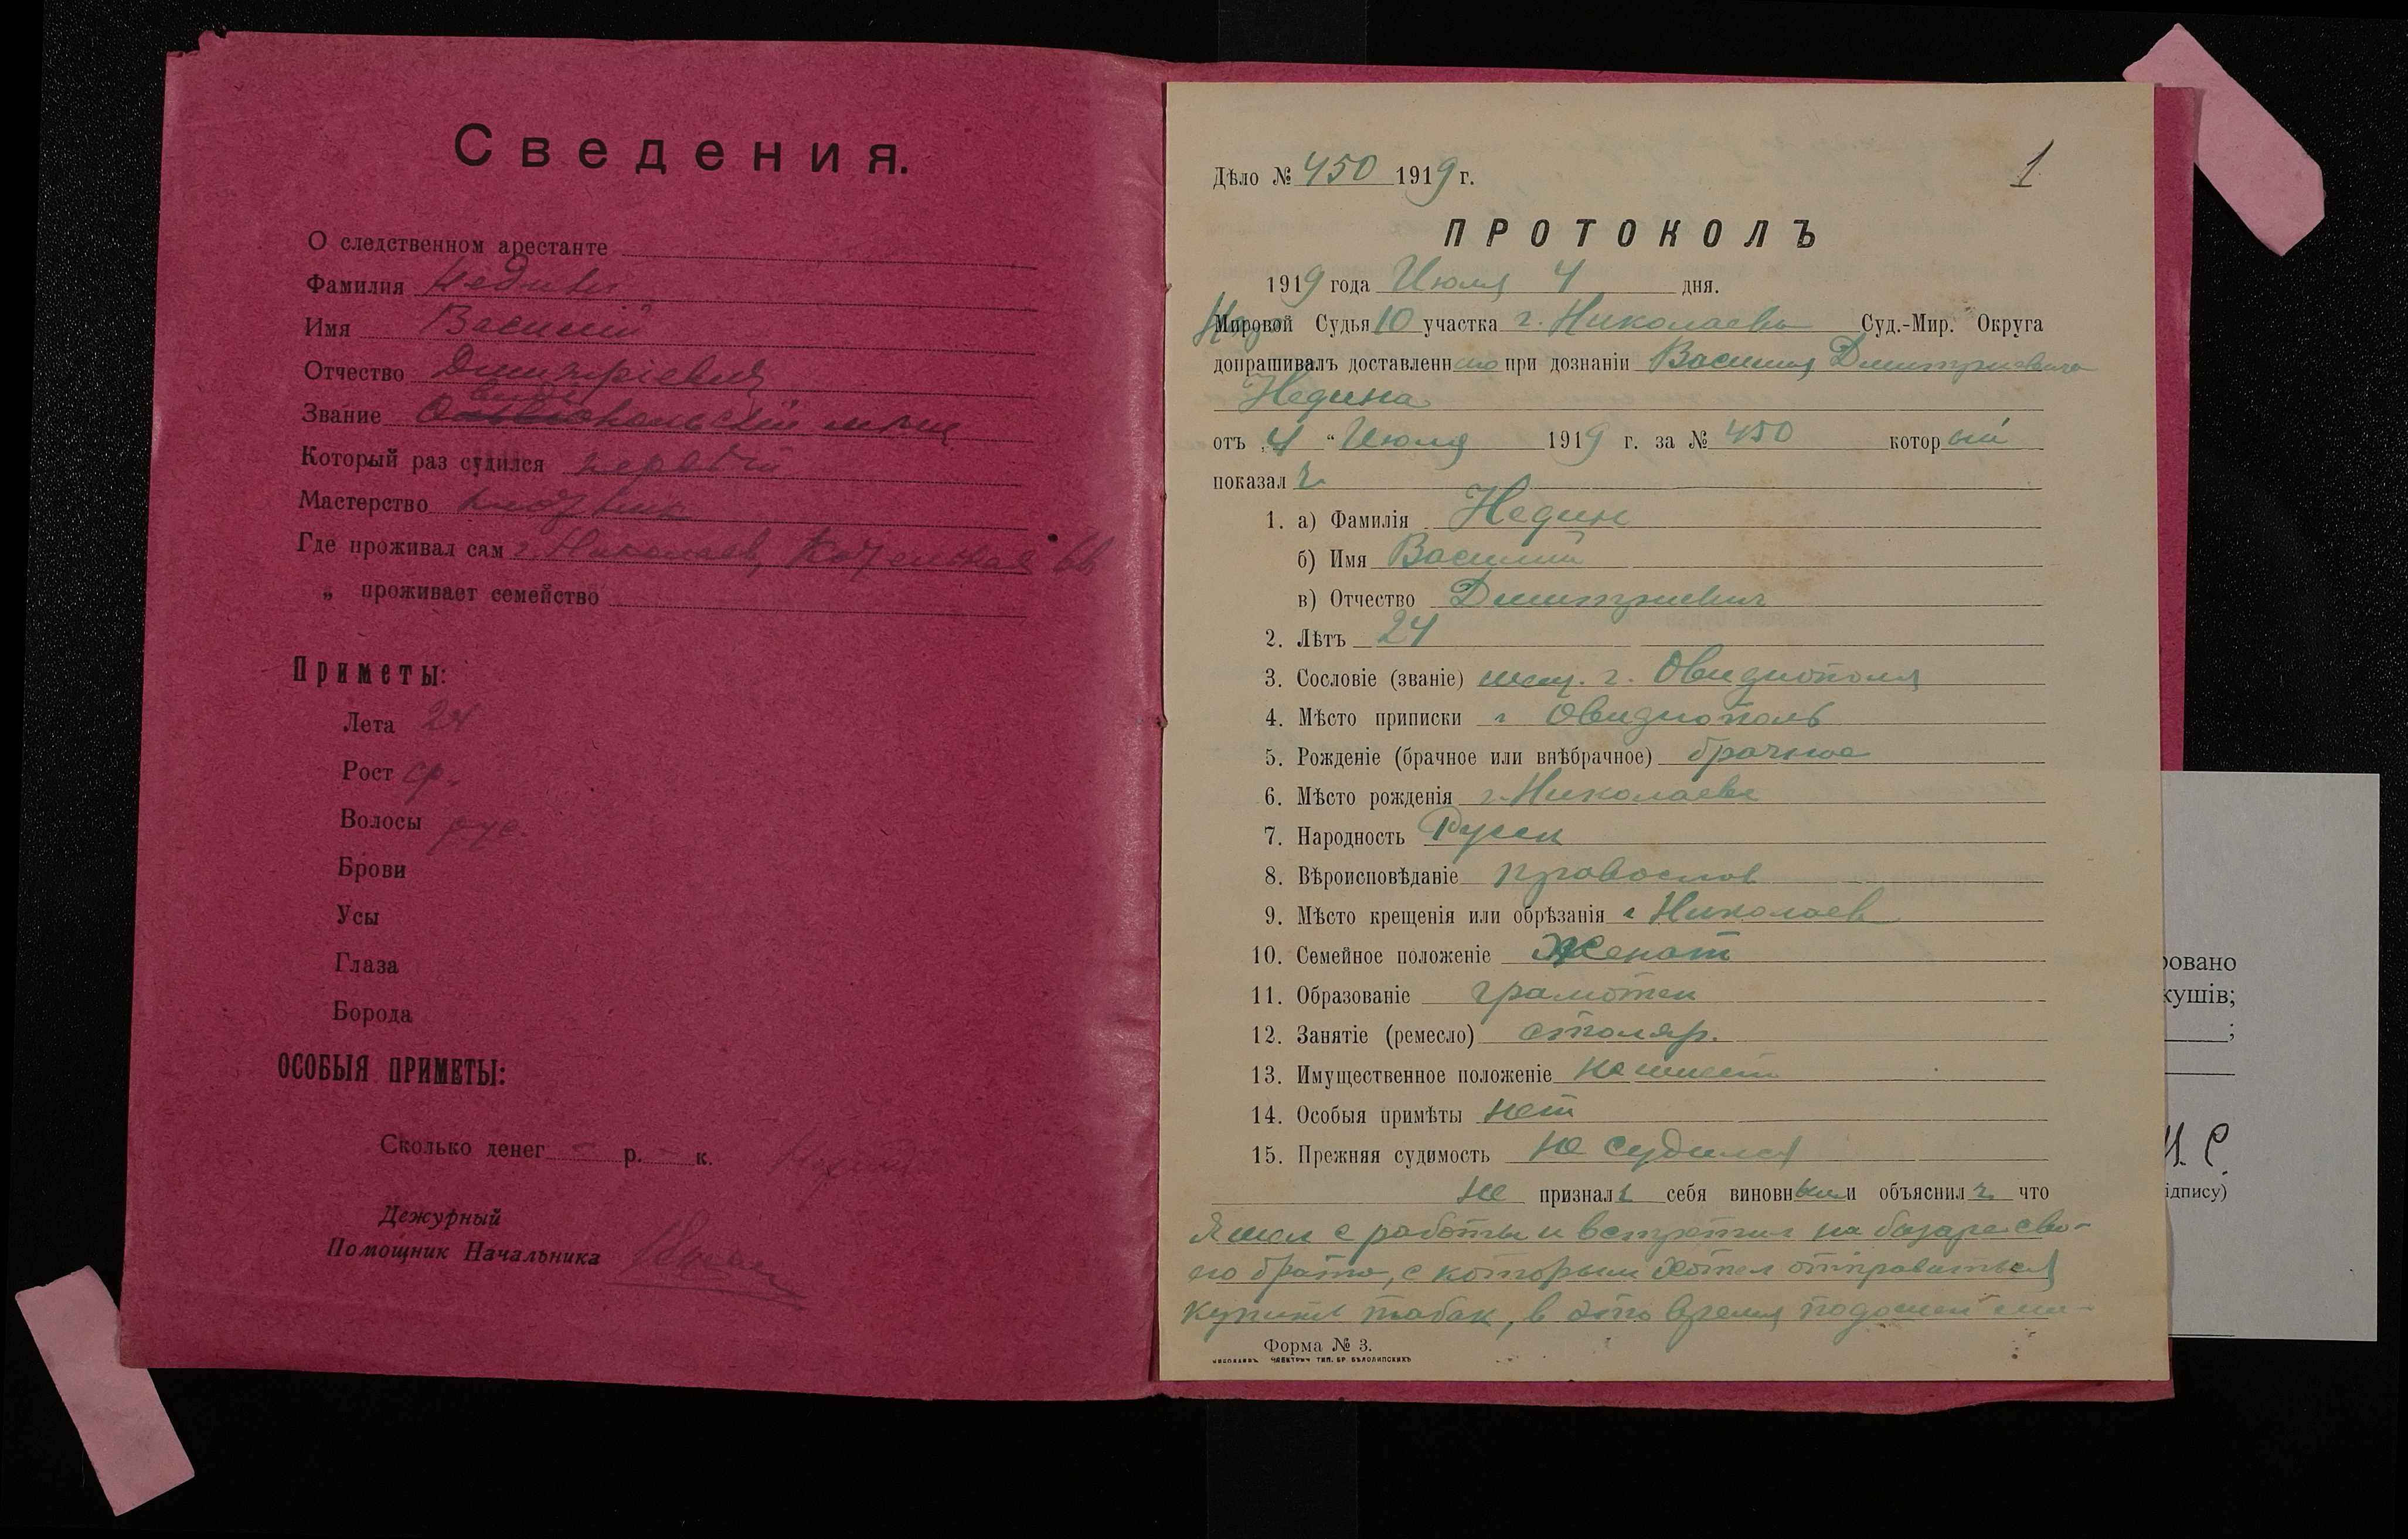 Сведения.
О следственном арестанте
Фамилия Недин
Имя Василий
Отчество Дмитріевич
Звание Овидіопольскій мещ
Который раз судился первый
Мастерство
Где проживал сам г. Николаев, Котельная
„ проживает семейство
Приметы:
Лета 24
Рост ср.
Волосы рус.
Брови
Усы
Глаза
Борода
ОСОБЫЯ ПРИМЕТЫ:
Сколько денег - р. - к.
Дежурный
Помощник Начальника
1
Дѣло № 450 1919 г.
ПРОТОКОЛЪ
1919 года Июля 4 дня.
Мировой Судья 10 участка г. Николаева Суд.-Мир. Округа
допрашивалъ доставленного при дознаніи Василия Дмитриевича
Недина
отъ „4 “ Июля 1919 г. за № 450 который
показал
1. а) Фамилія Недин
б) Имя Василий
в) Отчество Дмитриевич
2. Лѣтъ 24
3. Сословіе (званіе) мещ. г. Овидиополя
4. Мѣсто приписки г Овидиополь
5. Рожденіе (брачное или внѣбрачное) брачное
6. Мѣсто рожденія г. Николаеве
7. Народность Русск
8. Вѣроисповѣданіе православ
9. Мѣсто крещенія или обрѣзанія г Николаев
10. Семейное положеніе Женат
11. Образованіе грамотен
12. Занятіе (ремесло) столяр.
13. Имущественное положеніе не имеет
14. Особыя примѣты нет
15. Прежняя судимость не судился
не признал себя виновным и объяснил что
Я шел с работы и встретил на базаре сво-
его брата, с которым хотел отправиться
купить табак, в это время подошел
Форма № 3.
НИКОЛАЕВЪ. ЭЛЕКТРИЧ ТИП. БР БѢЛОЛИПСКИХЪ
ровано
кушів;
;
И. С.
ідпису)